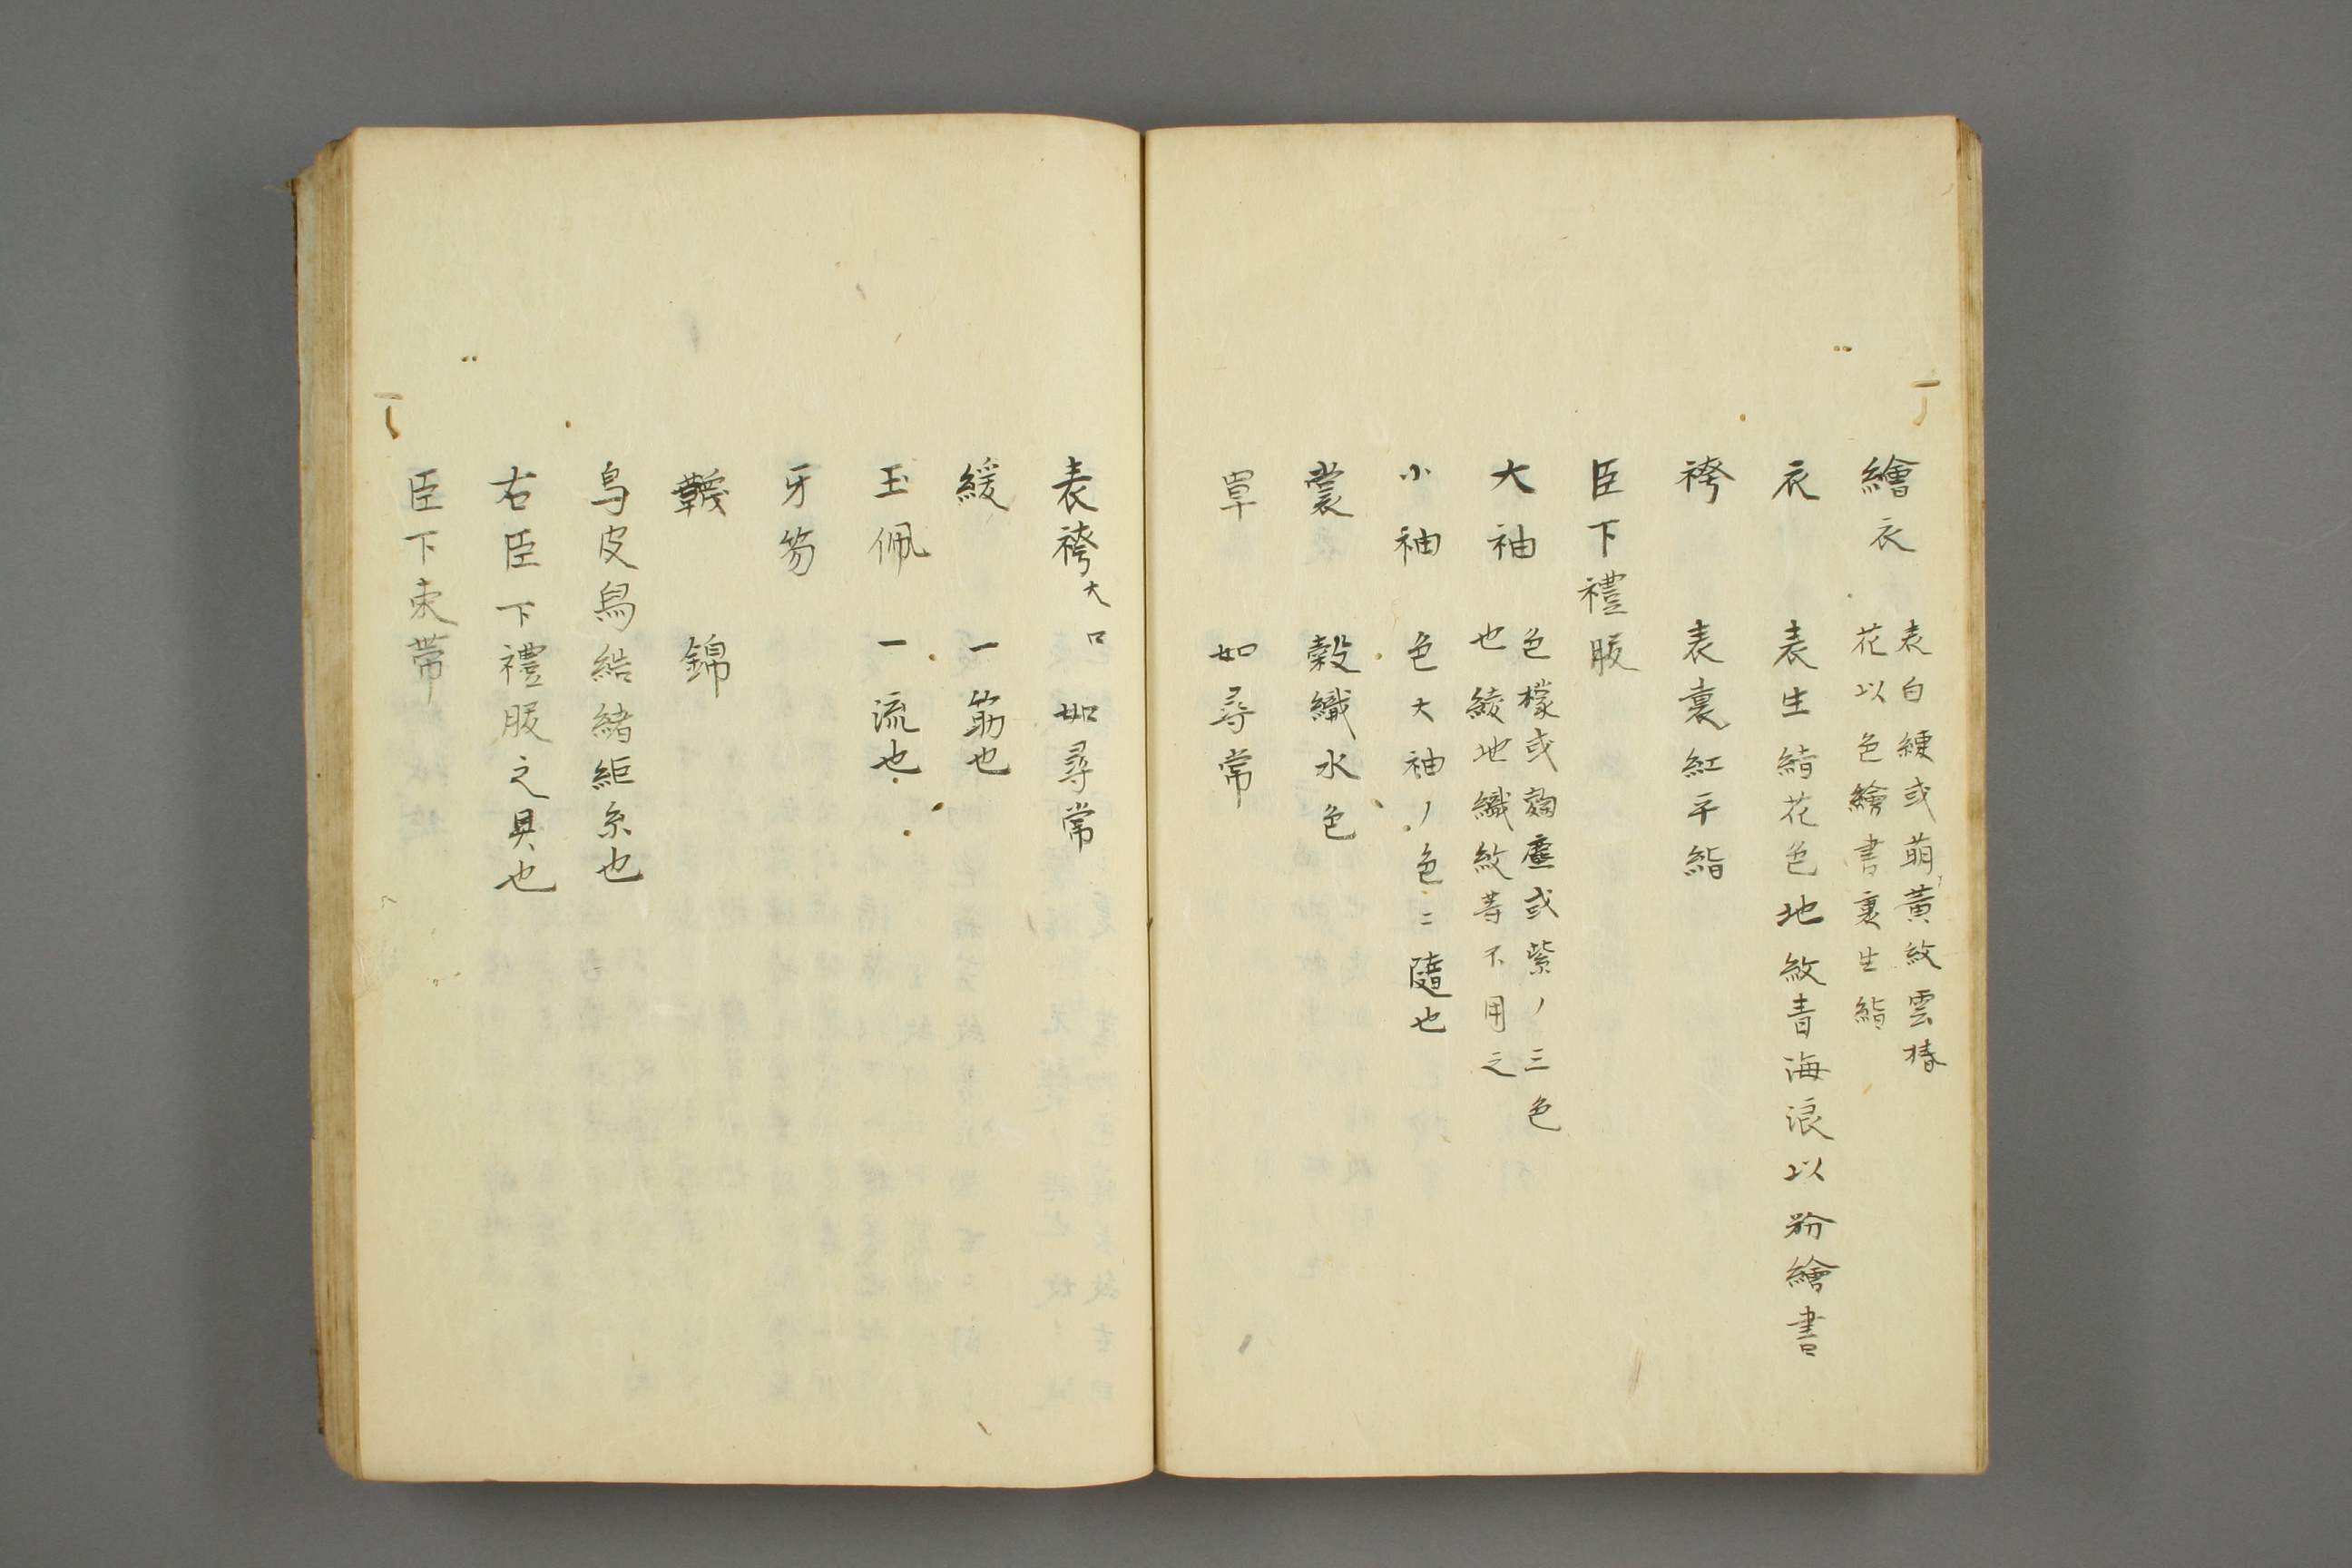 繪衣 表白練或萌黄紋雲椿
花以色繪書裏生絹
衣 表生絹花色地紋青海浪以粉繪書
袴 表裏紅平絹
臣下禮服
大袖 色檬或麹塵或紫ノ三色
也綾地織紋等不用之
小袖 色大袖ノ色ニ随也
裳 縠織水色
單 如尋常
表袴大口 如尋常
綬 一筋也
玉佩 一流也
牙笏
韈 錦
烏皮舄 結緒組糸也
右臣下禮服之具也
臣下束帯